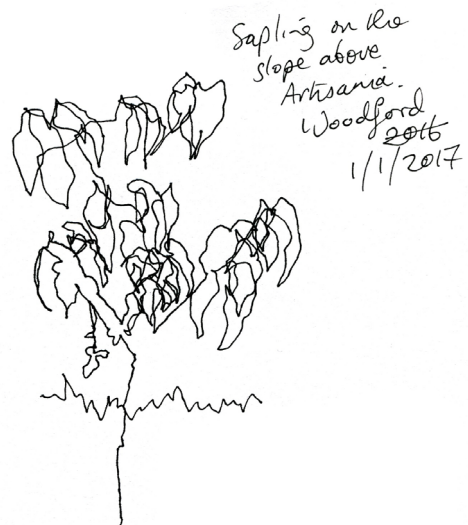 Sapling on the
slope above
Artisania.
Woodford
2016
1/1/2017